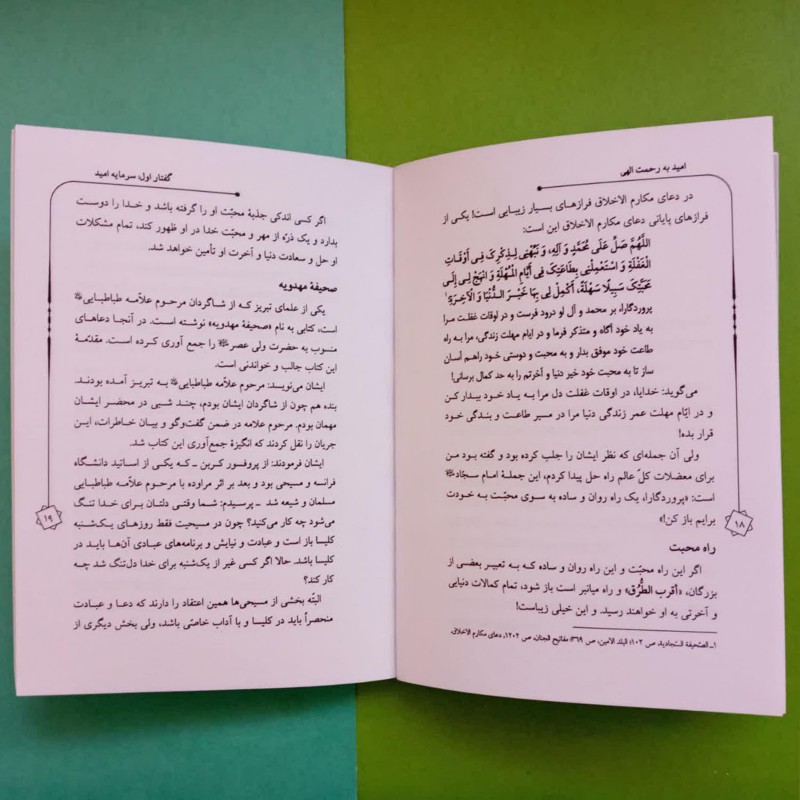 امید به رحمت الهی
در دعای مکارم الاخلاق فرازهای بسیار زیبایی است! یکی از
فرازهای پایانی دعای مکارم الاخلاق این است:
اللَّهُمَّ صَلِّ عَلَى مُحَمَّدٍ وَ آلِهِ، وَ نَبِّهْنِی لِذِکْرِکَ فِی أَوْقَاتِ
الْغَفْلَةِ وَ اسْتَعْمِلْنِی بِطَاعَتِکَ فِی أَیَّامِ الْمُهْلَةِ وَ انْهَجْ لِی إِلَى
مَحَبَّتِکَ سَبِیلًا سَهْلَةً، أَکْمِلْ لِی بِهَا خَیْرَ الدُّنْیَا وَ الْآخِرَةِ؛۱
پروردگارا، بر محمد و آل او درود فرست و در اوقات غفلت مرا
به یاد خود آگاه و متذکر فرما و در ایام مهلت زندگی، مرا به راه
طاعت خود موفق بدار و به محبت و دوستی خود راهم آسان
ساز تا به محبت خود خیر دنیا و آخرتم را به حد کمال برسانی!
می‌گوید: خدایا، در اوقات غفلت دل مرا به یاد خود بیدار کن
و در ایّام مهلت عمر زندگی دنیا مرا در مسیر طاعت و بندگی خود
قرار بده!
ولی آن جمله‌ای که نظر ایشان را جلب کرده بود و گفته بود من
برای معضلات کلّ عالم راه حل پیدا کردم، این جملهٔ امام سجّاد
است: «پروردگارا، یک راه روان و ساده به سوی محبّت به خودت
برایم باز کن!»
راه محبت
اگر این راه محبّت و این راه روان و ساده که به تعبیر بعضی از
بزرگان، «أقرب الطُّرُق» و راه میانبر است باز شود، تمام کمالات دنیایی
و آخرتی به او خواهند رسید. و این خیلی زیباست!
۱ـ الصّحیفة السجادیة، ص ۱۰۲؛ البلد الامین، ص ۳۶۹؛ مفاتیح الجنان، ص ۱۲۰۲، دعای مکارم الاخلاق.
۱۸
گفتار اول: سرمایه امید
اگر کسی اندکی جذبهٔ محبّت او را گرفته باشد و خدا را دوست
بدارد و یک ذرّه از مهر و محبّت خدا در او ظهور کند، تمام مشکلات
او حل و سعادت دنیا و آخرت او تأمین خواهد شد.
صحیفهٔ مهدویه
یکی از علمای تبریز که از شاگردان مرحوم علاّمه طباطبایی
است، کتابی به نام «صحیفهٔ مهدویه» نوشته است. در آنجا دعاهای
منسوب به حضرت ولی عصر را جمع آوری کرده است. مقدّمهٔ
این کتاب جالب و خواندنی است.
ایشان می‌نویسد: مرحوم علاّمه طباطبایی به تبریز آمده بودند.
بنده هم چون از شاگردان ایشان بودم، چند شبی در محضر ایشان
مهمان بودم. مرحوم علامه در ضمن گفت‌وگو و بیان خاطرات، این
جریان را نقل کردند که انگیزهٔ جمع‌آوری این کتاب شد.
ایشان فرمودند: از پروفسور کربن ـ که یکی از اساتید دانشگاه
فرانسه و مسیحی بود و بعد بر اثر مراوده با مرحوم علاّمه طباطبایی
مسلمان و شیعه شد ـ پرسیدم: شما وقتی دلتان برای خدا تنگ
می‌شود چه کار می‌کنید؟ چون در مسیحیت فقط روزهای یک‌شنبه
کلیسا باز است و عبادت و نیایش و برنامه‌های عبادی آن‌ها باید در
کلیسا باشد. حالا اگر کسی غیر از یک‌شنبه برای خدا دل‌تنگ شد چه
کار کند؟
البتّه بخشی از مسیحی‌ها همین اعتقاد را دارند که دعا و عبادت
منحصراً باید در کلیسا و با آداب خاصّی باشد، ولی بخش دیگری از
۱۹